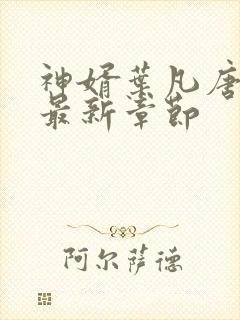 神婿叶凡唐
最新章节
阿尔萨德